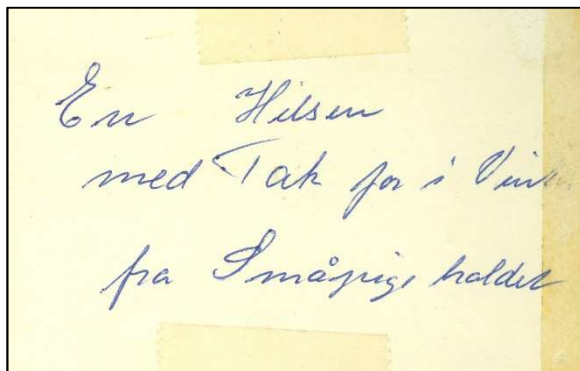 En Hilsen
med Tak for i
fra Småpige holdet